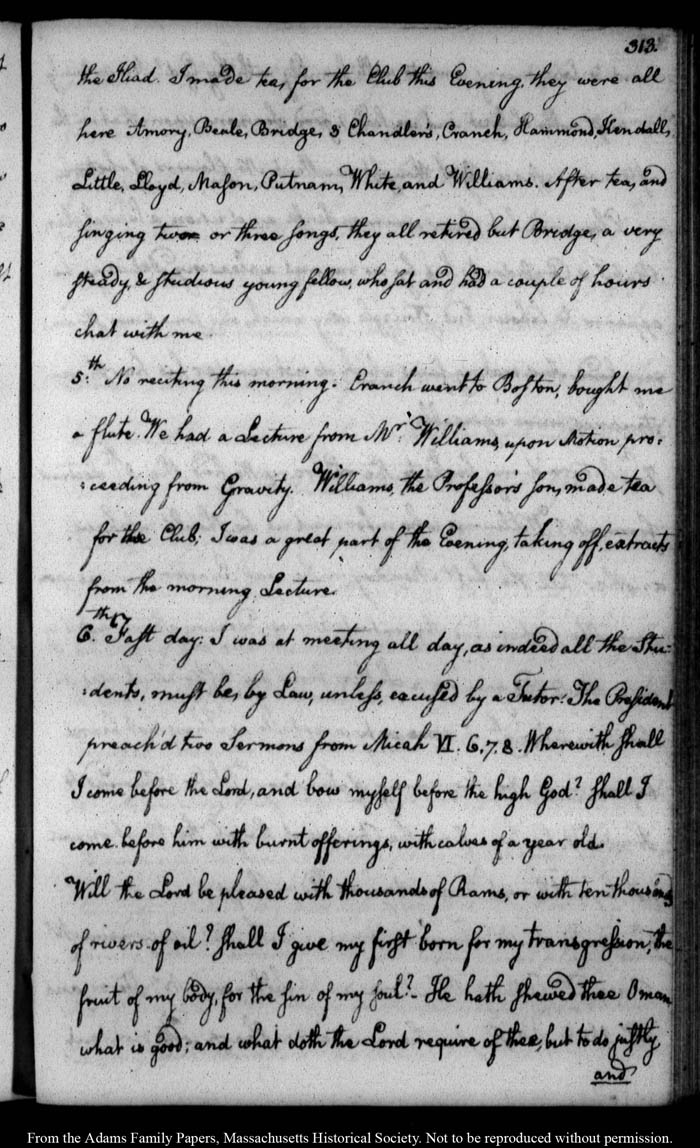 313.
the Iliad. I made tea, for the Club this Evening, they were all
here Amory, Beale, Bridge, 3 Chandler's, Cranch, Hammond, Kendall,
Little, Lloyd, Mason, Putnam, White, and Williams. After tea, and
singing two or three songs, they all retired but Bridge, a very
steady, & studious young fellow, who sat and had a couple of hours
chat with me.
5.th No reciting this morning. Cranch went to Boston, bought me
a flute. We had a Lecture from Mr. Williams, upon Motion pro:
:ceeding from Gravity. Williams, the Professor's son, made tea
for the Club; I was a great part of the Evening, taking off, extracts
from the morning Lecture.
6.th Fast day: I was at meeting all day, as indeed all the Stu:
:dents, must be, by Law, unless, excused by a Tutor. The President
preach'd two Sermons from Micah VI. 6, 7, 8. Wherewith shall
I come before the Lord, and bow myself before the high God? shall I
come before him with burnt offerings, with calves of a year old.
Will the Lord be pleased with thousands of Rams, or with ten thousands
of rivers of oil? shall I give my first born for my transgression, the
fruit of my body, for the sin of my soul?- He hath shewed thee O man
what is good; and what doth the Lord require of thee, but to do justly
and
From the Adams Family Papers, Massachusetts Historical Society. Not to be reproduced without permission.